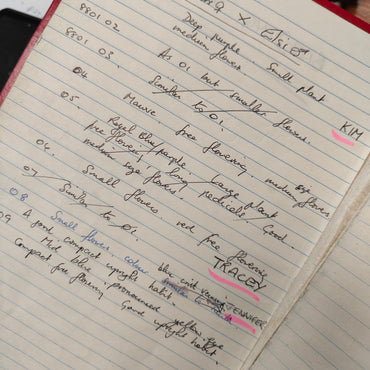 x Elsie
8801 02 Deep purple. Small plant
medium flower.
8801 03. As 01 but smaller flowers.
04 Similar to 01.
05. Mauve free flowering, medium size flowers
KIM
Royal Blue/purple. Large plant
free flower, long pedicels. Good
medium size flowers.
06. Small flowers, red free flowering
07 Similar to 05.
TRACEY
08 Small flowers, colour
A good, compact upright habit.
JENNIFER
09 Mid blue
Compact free flowering, pronounced yellow eye
Good upright habit.